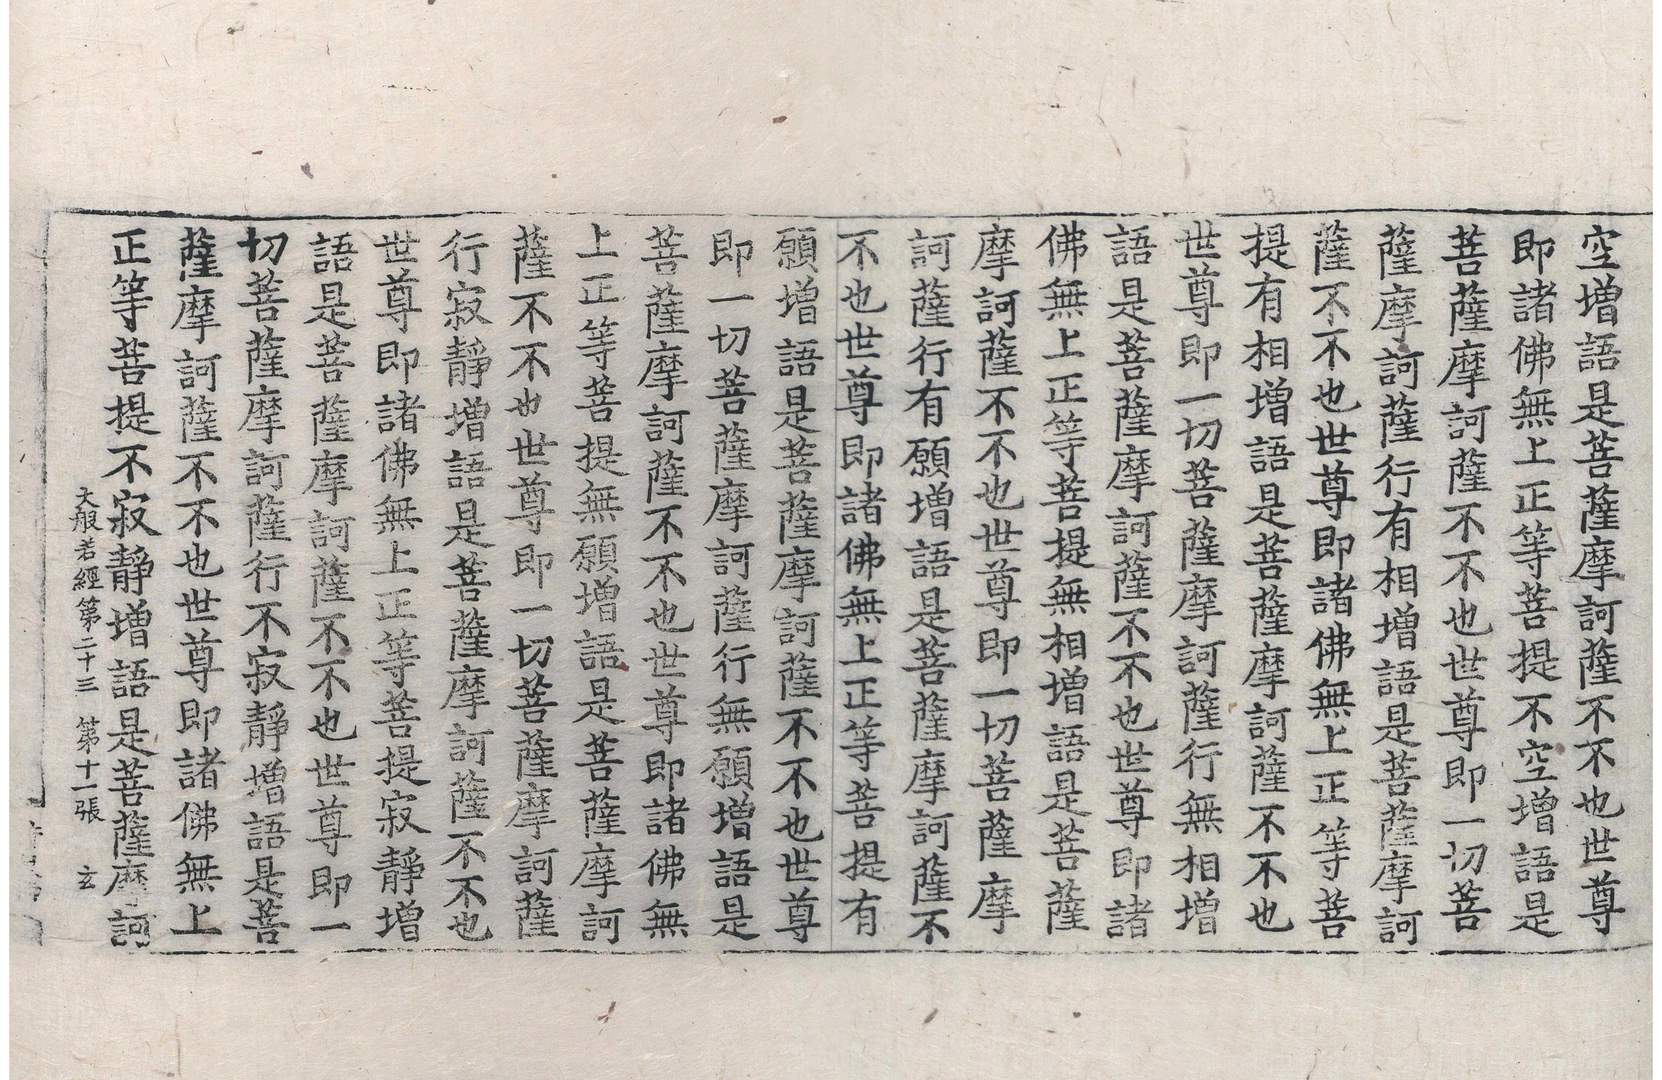 空增語是菩薩摩訶薩不不也世尊
即諸佛無上正等菩提不空增語是
菩薩摩訶薩不不也世尊即一切菩
薩摩訶薩行有相增語是菩薩摩訶
薩不不也世尊即諸佛無上正等菩
提有相增語是菩薩摩訶薩不不也
世尊即一切菩薩摩訶薩行無相增
語是菩薩摩訶薩不不也世尊即諸
佛無上正等菩提無相增語是菩薩
摩訶薩不不也世尊即一切菩薩摩
訶薩行有願增語是菩薩摩訶薩不
不也世尊即諸佛無上正等菩提有
願增語是菩薩摩訶薩不不也世尊
即一切菩薩摩訶薩行無願增語是
菩薩摩訶薩不不也世尊即諸佛無
上正等菩提無願增語是菩薩摩訶
薩不不也世尊即一切菩薩摩訶薩
行寂靜增語是菩薩摩訶薩不不也
世尊即諸佛無上正等菩提寂靜增
語是菩薩摩訶薩不不也世尊即一
切菩薩摩訶薩行不寂靜增語是菩
薩摩訶薩不不也世尊即諸佛無上
正等菩提不寂靜增語是菩薩摩訶
大般若經第二十三 第十一張 玄